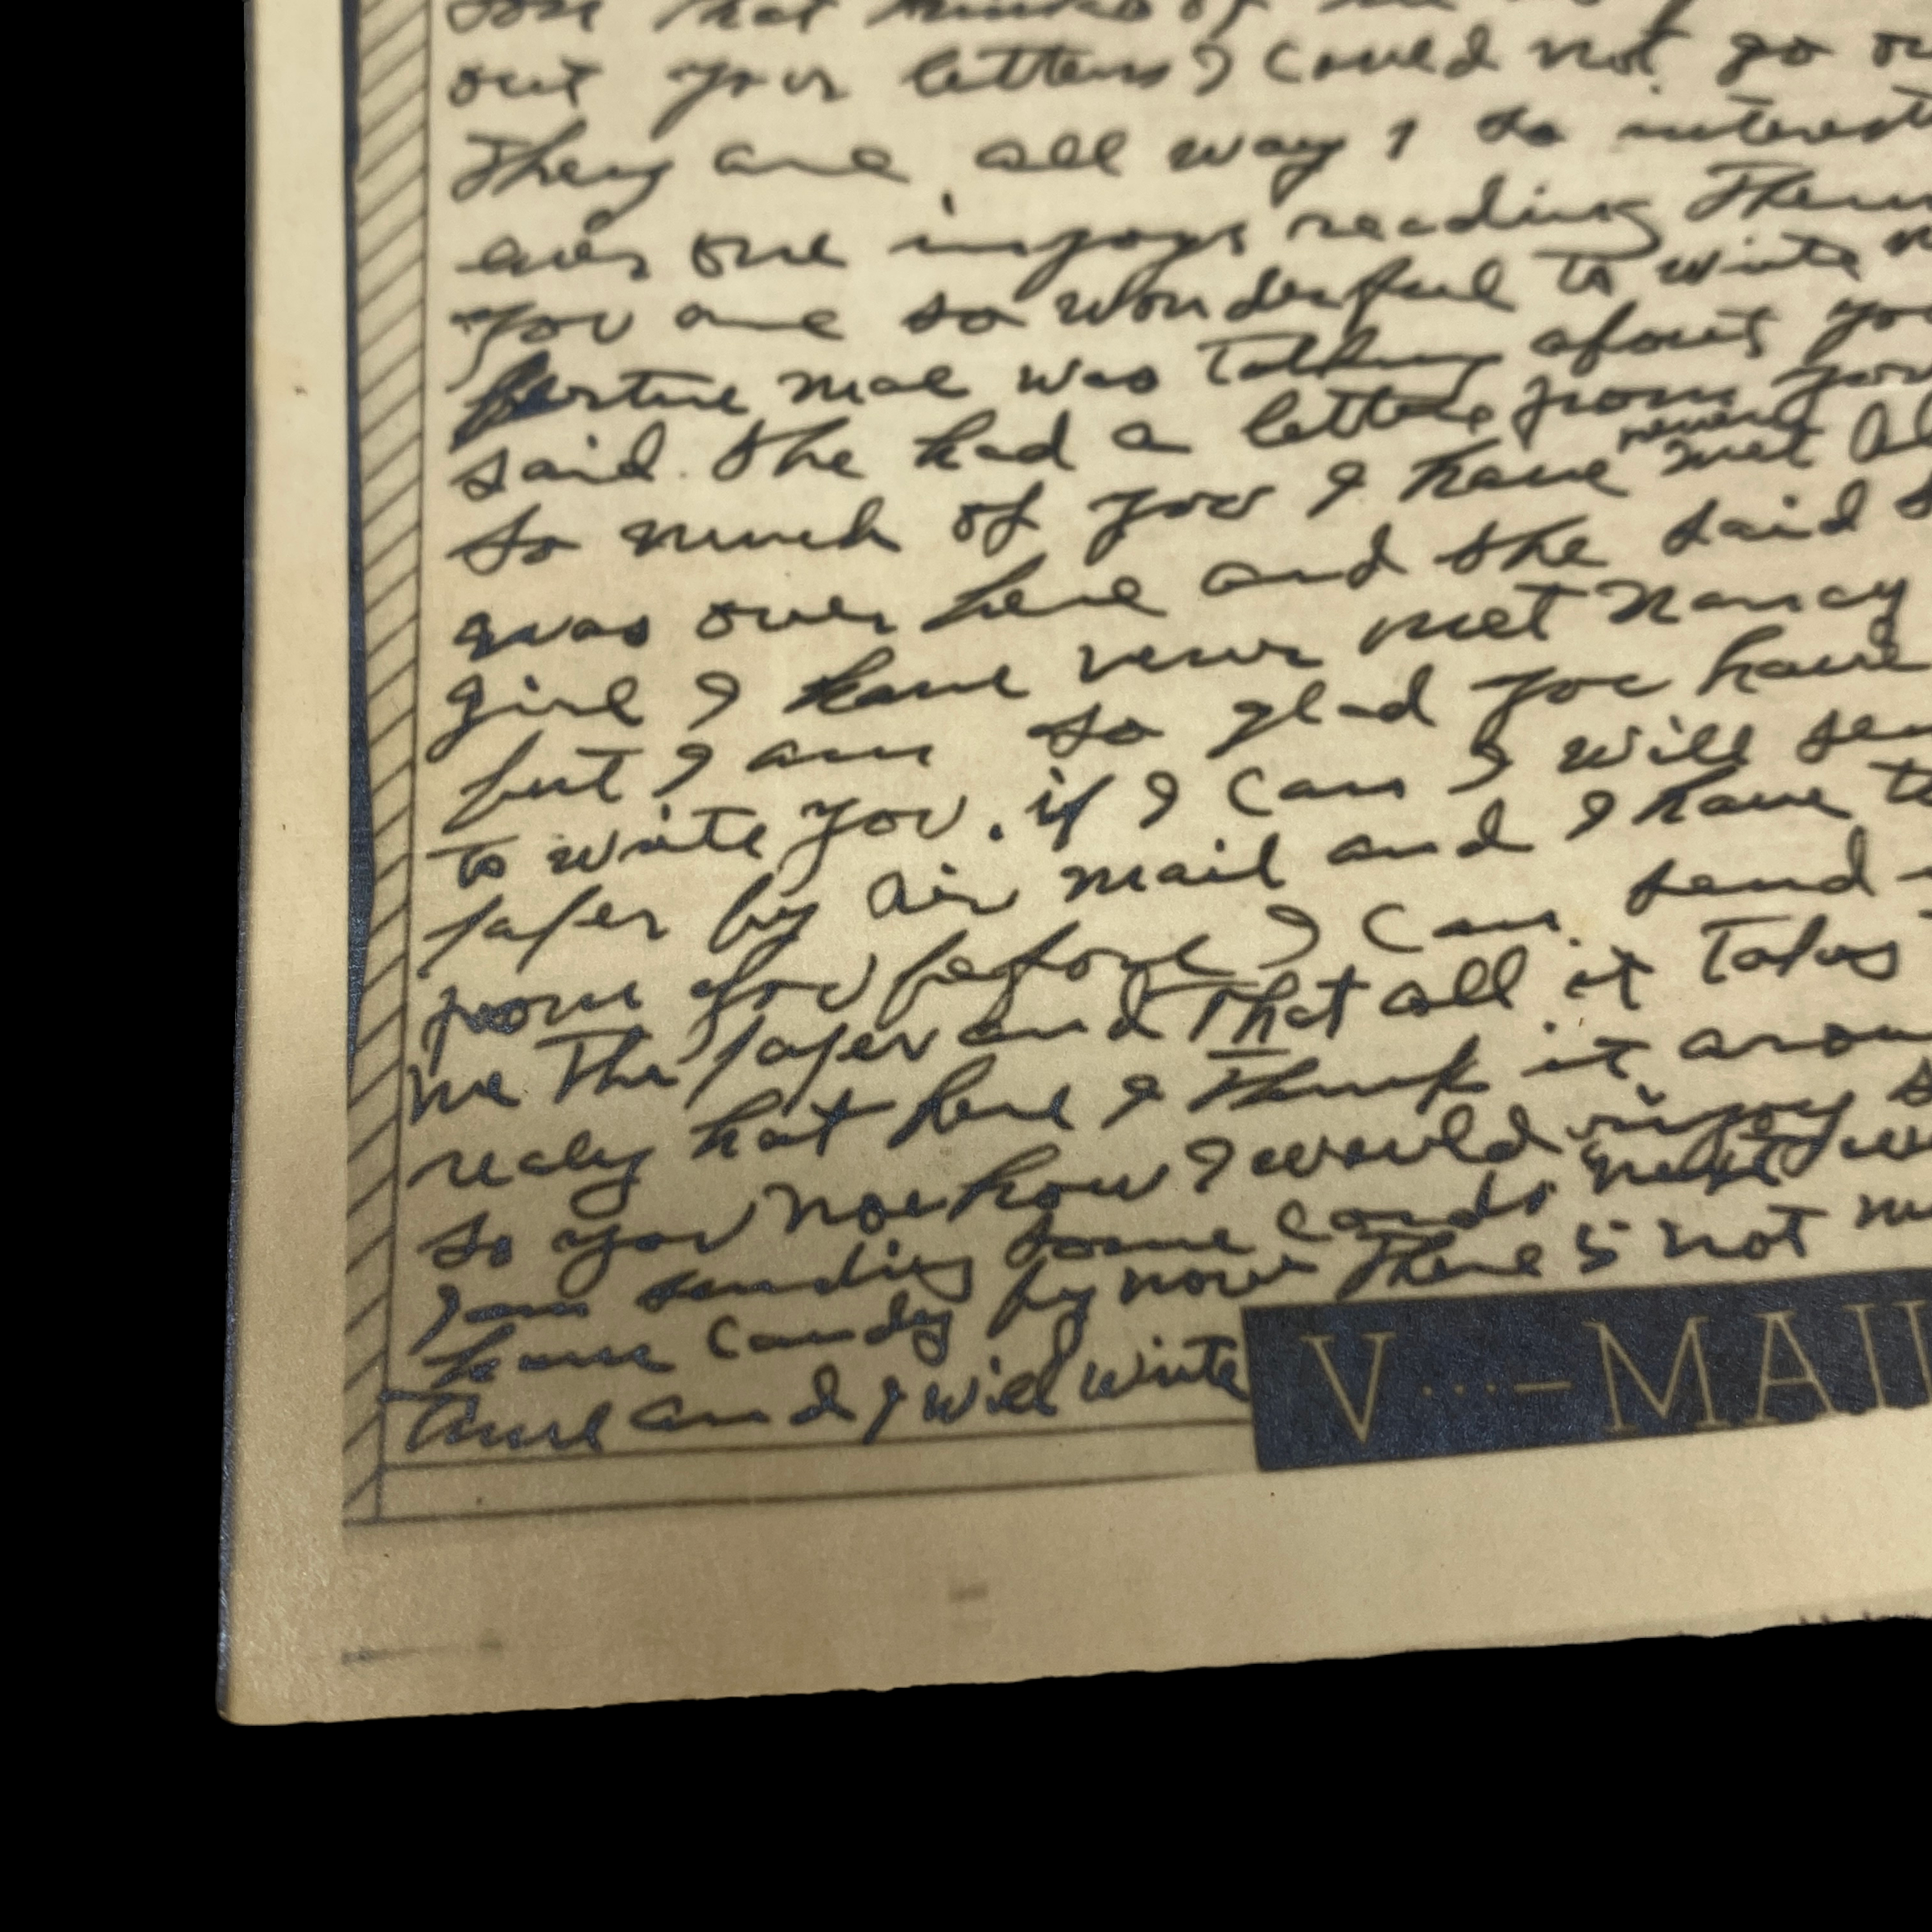 son that thinks of me
out your letters I could not go
They are all way s so interest
ever one injoys reading Them
you are so wonderful to write
mae was Talking about yo
said she had a letter from you
so much of you I have never met
was over here and she said
girl I have never met Nancy
but I am so glad you have
to write you. if I can I will sen
paper by air mail and I have t
from you before I can send
me The paper and That all it Takes
realy hot here I Think it arou
so you noe how I would injoy s
I am sending some cards next w
have candy by now There s not mu
Time and I will write
V···—MAIL